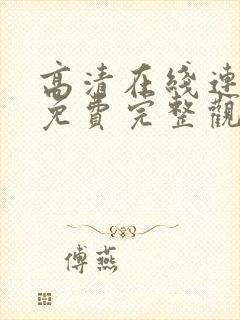 高清在綫連
免費完整觀
傅燕